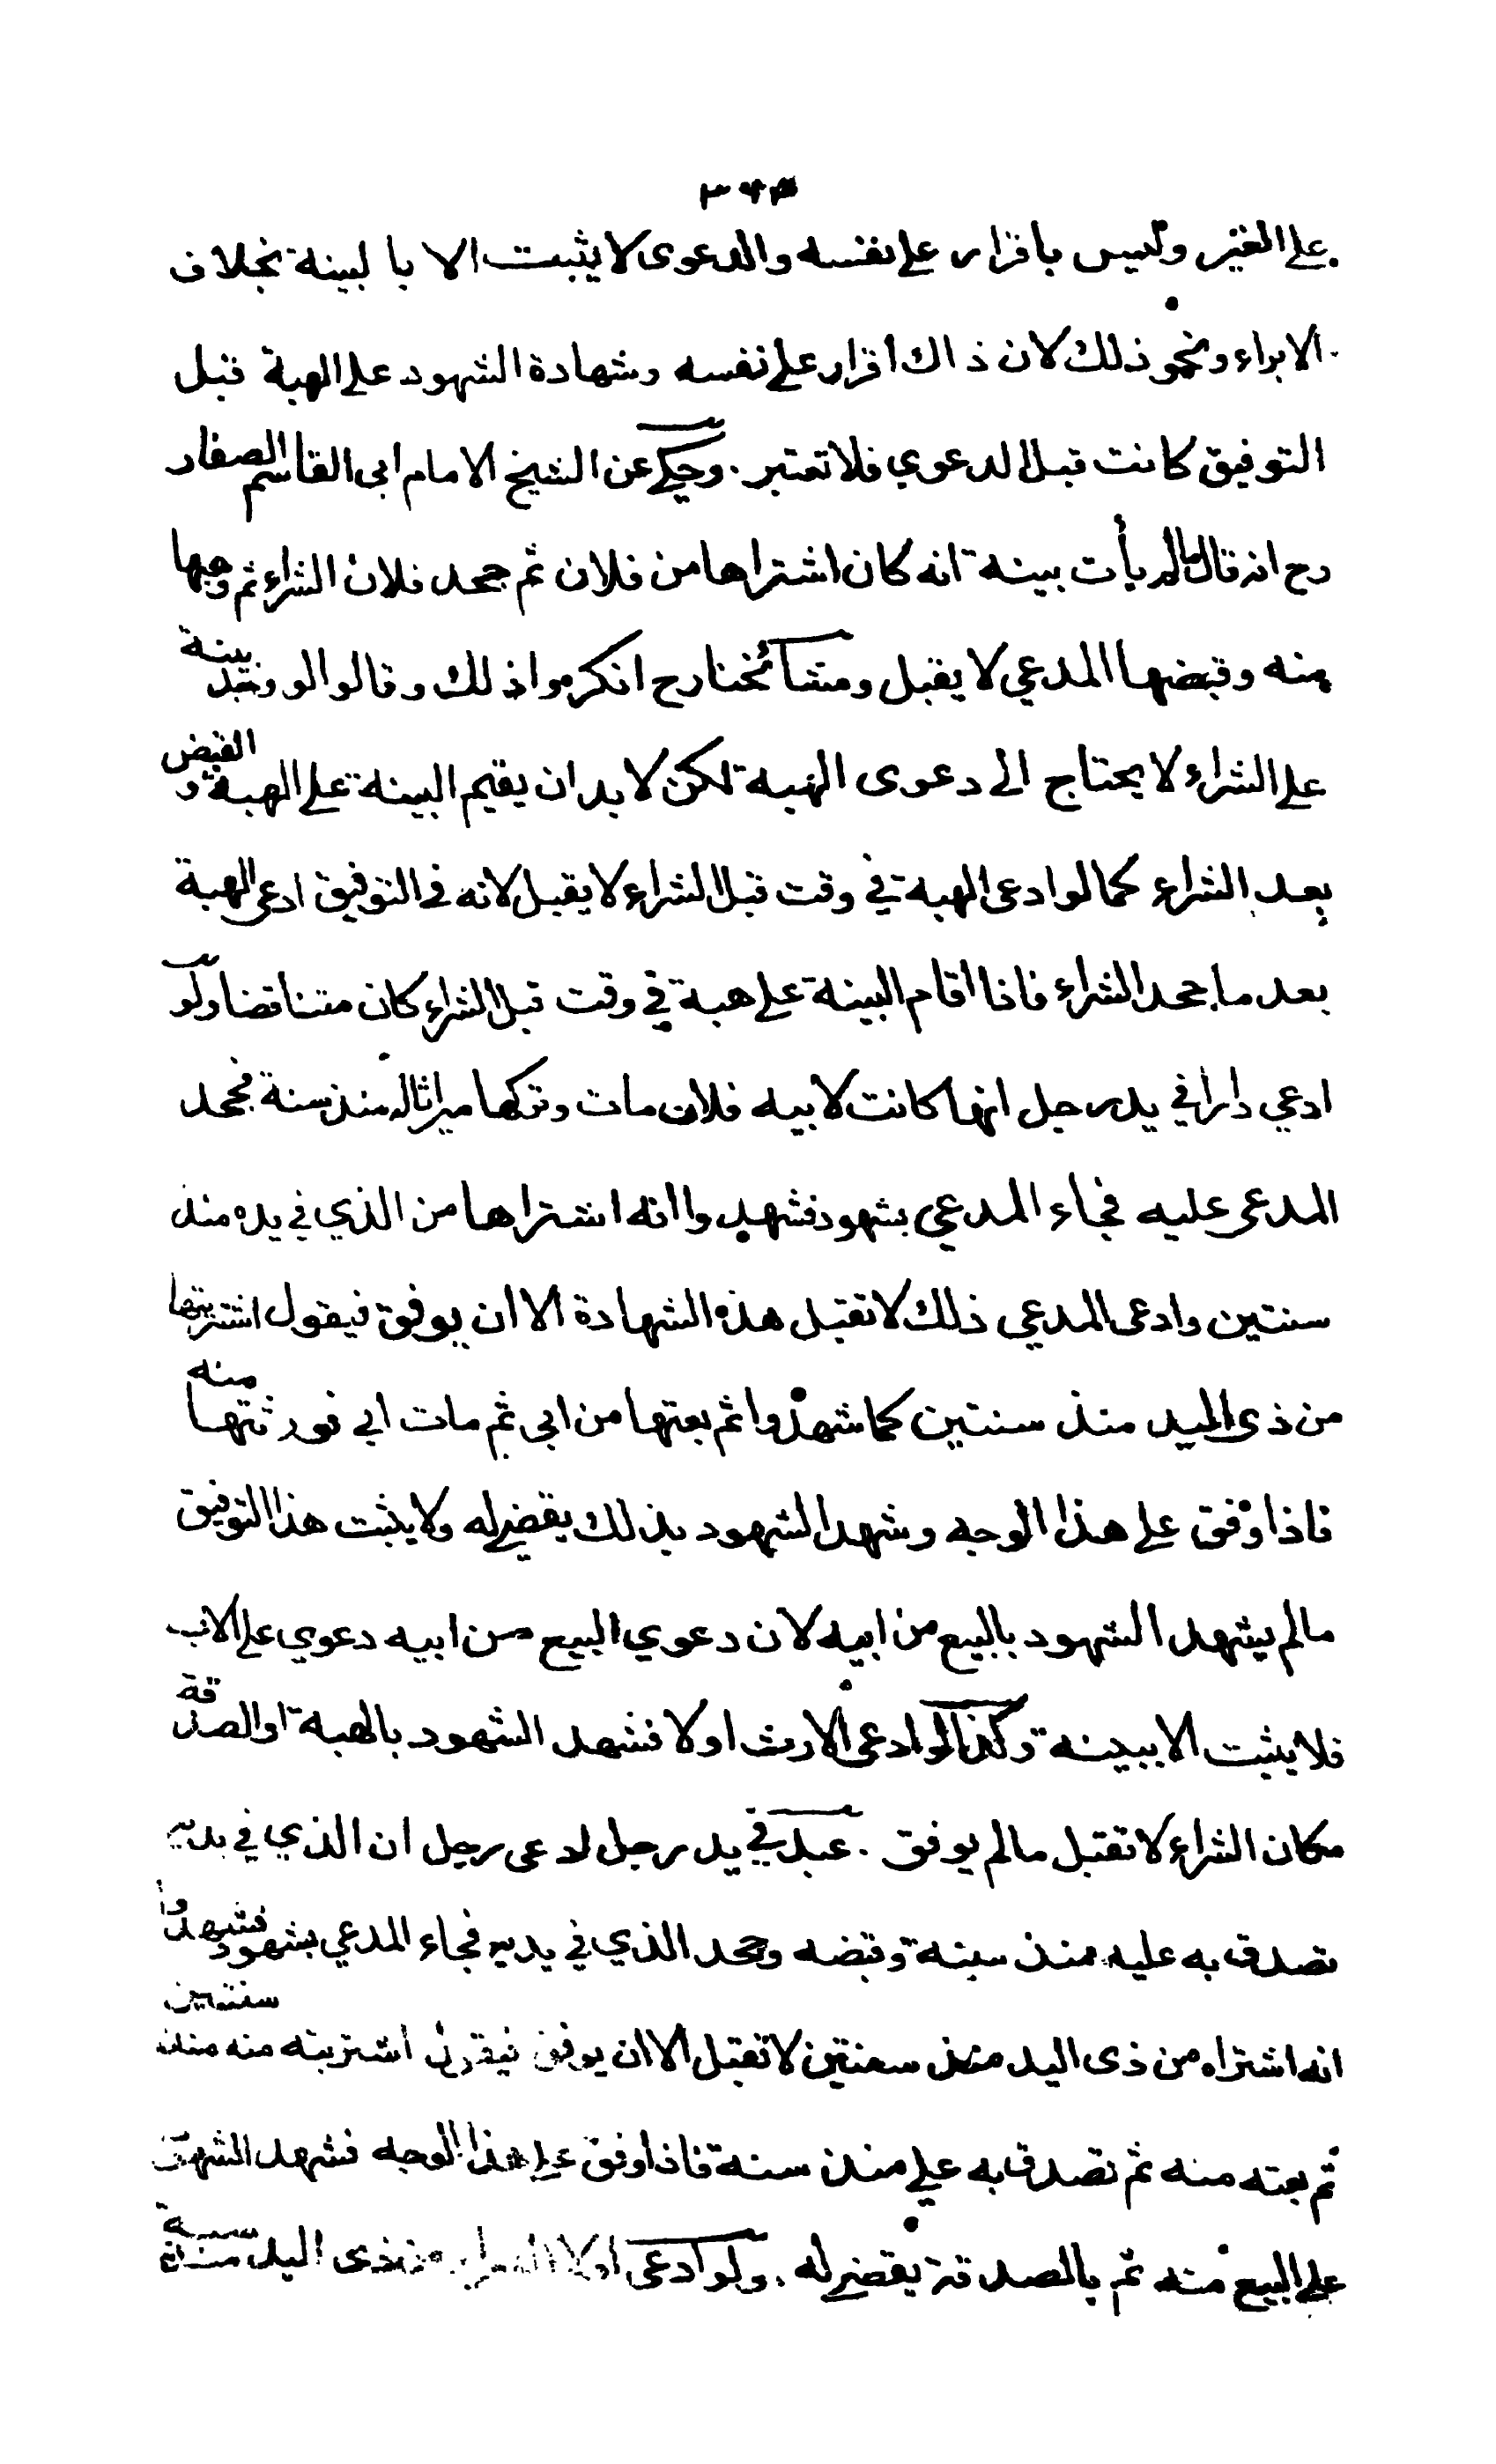 على الغير وليس باقرار على نفسه والدعوى لا يثبت الا بالبينة بخلاف
الابراء ونحو ذلك لان ذاك اقرار على نفسه وشهادة الشهود على الهبة قبل
التوفيق كانت قبل الدعوي فلا تعتبر. وحكي عن الشيخ الامام ابى القاسم الصفار
رح انه قال ما لم يأت ببينة انه كان اشتراها من فلان ثم جحد فلان الشراء ثم وهبها
منه وقبضها المدعي لا يقبل ومشائخنا رح انكروا ذلك وقالوا لو وجد بينة
على الشراء لا يحتاج الى دعوى الهبة لكن لا بد ان يقيم البينة على الهبة و القبض
بعد الشراء كما لو ادعى الهبة في وقت قبل الشراء لا يقبل لانه في التوفيق ادعى الهبة
بعد ما جحد الشراء فاذا اقام البينة على هبة في وقت قبل الشراء كان متناقضا ولو
ادعي دارا في يد رجل انها كانت لابيه فلان مات وتركها ميراثا له منذ سنة فجحد
المدعى عليه فجاء المدعي بشهود فشهدوا انه اشتراها من الذي في يده منذ
سنتين وادعى المدعي ذلك لا تقبل هذه الشهادة الا ان يوفق فيقول اشتريتها
من ذى اليد منذ سنتين كما شهدوا ثم بعتها من ابى ثم مات ابي فورثتها منه
فاذا وفق على هذا الوجه وشهد الشهود بذلك يقضى له ولا يثبت هذا التوفيق
ما لم يشهد الشهود بالبيع من ابيه لان دعوي البيع من ابيه دعوي على الاب
فلا يثبت الا ببينة وكذا لو ادعى الارث اولا فشهد الشهود بالهبة او الصدقة
مكان الشراء لا تقبل ما لم يوفق. عبد في يد رجل ادعى رجل ان الذي في يديه
تصدق به عليه منذ سنة وقبضه وجحد الذي في يديه فجاء المدعي بشهود فشهدوا
انه اشتراه من ذى اليد منذ سنتين لا تقبل الا ان يوفق فيقول اشتريته منه منذ سنتين
ثم بعته منه ثم تصدق به علي منذ سنة فاذا وفق على هذا الوجه فشهد الشهود
على البيع منه ثم بالصدقة يقضى له. ولو ادعى اولا الشراء من ذى اليد منذ سنة